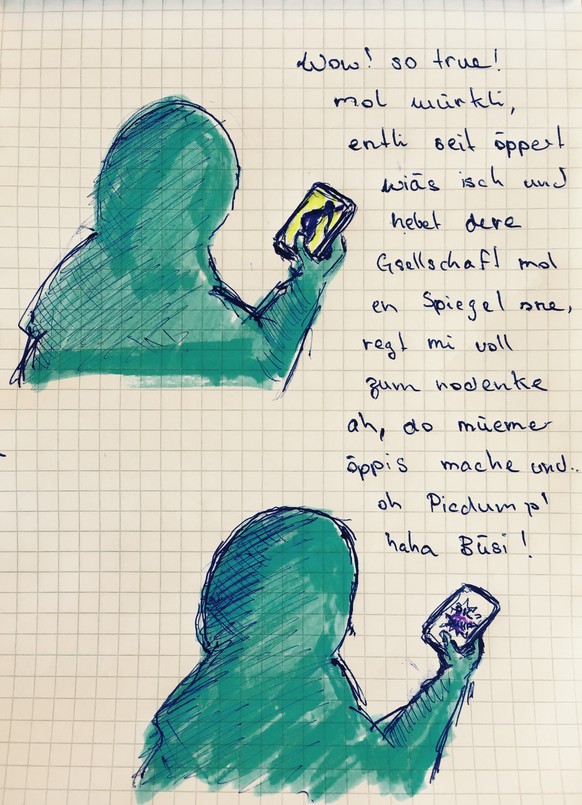 Wow! so true!
mol würkli,
entli seit öppert
wiäs isch und
hebet dere
Gsellschaft mol
en Spiegel ane,
regt mi voll
zum nodenke
ah, do müemer
öppis mache und..
oh Picdump!
haha Büsi!